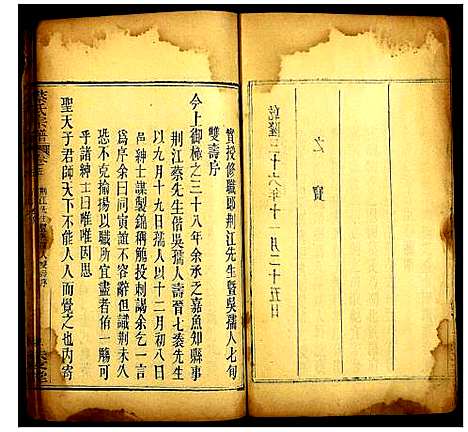 之寶
乾隆三十六年十一月二十五日
實授修職郎荆江先生暨吳孺人七旬
雙壽序
今上御極之三十八年余承乏嘉魚知縣事
荆江蔡先生偕吳孺人壽晉七袠先生
以九月十九日孺人以十二月初八日
邑紳士謀製錦稱觴投刺謁余乞一言
爲序余曰同寅誼不容辭但識荆未久
恐不克揄揚以職所宜盡者侑一觴可
乎諸紳士曰唯唯因思
聖天子君師天下不能人人而覺之也內寄
蔡氏宗譜